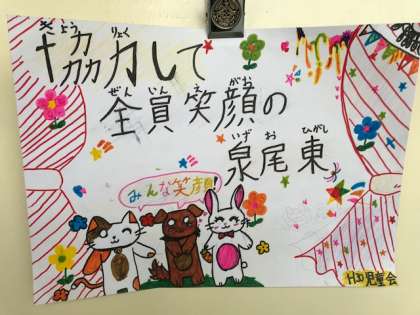 きょうりょく
協力して
ぜんいんえがお
全員笑顔の
いずおひがし
泉尾東
みんな笑顔!!
H30児童会